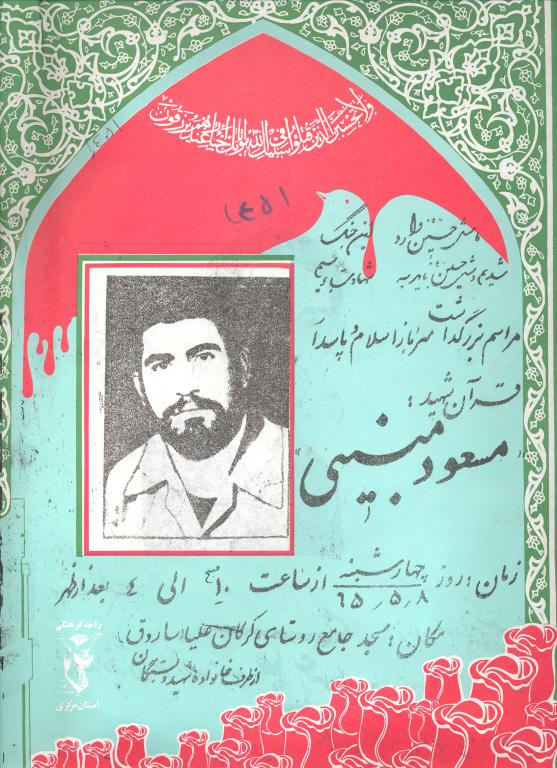 ولا تحسبن الذین قتلوا فی سبیل الله امواتا بل احیاء عند ربهم یرزقون
۱۴۵۱
۱۴۵۱
ما مثل حسین وارد جنگ
شدیم و مثل حسین باید به شهادت برسیم
مراسم بزرگداشت سرباز اسلام و پاسدار
قرآن شهید:
"مسعود مبینی"
زمان: روز چهارشنبه از ساعت ۱۰ صبح الی ۴ بعدازظهر
۶۵٫۵٫۸
مکان: مسجد جامع روستای کرکان علیا ساروق
از طرف خانواده شهید و بستگان
واحد فرهنگی
استان مرکزی